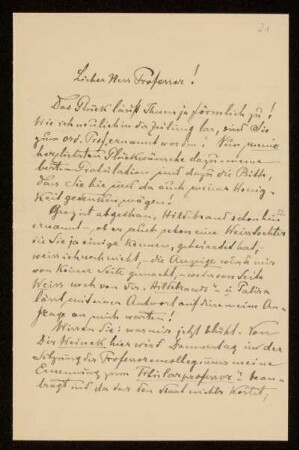 21
Lieber Herr Professor!
Das Glück läuft Ihnen ja förmlich zu!
Wie ich neulich in der Zeitung las, sind Sie
zum ord. Prof. ernannt worden! Nun meine
herzlichsten Glückwünsche dazu meine
besten Gratulation und dazu die Bitte,
dass Sie hie und da auch meiner Wenig-
keit gedenken mögen!
abgethan, Hildebrand schon
ernannt - ob er auch schon eine Weisstochter
die Sie ja einzige können, geheiratet hat,
weiss ich noch nicht, - die Anzeige würde mir
von keiner Seite gemacht, - weder von Seite
Weiss noch von Seite Hildebrands - u.
lässt mit einer Antwort auf eine meine An-
frage an mich warten!
Wissen Sie: was mir jetzt blüht: Von
Dir. hier wird Donnerstag in der
Sitzung des Professorencollegiums meine
Ernennung zum Titularprofessor bean-
tragt und da das den Staat nichts kostet,